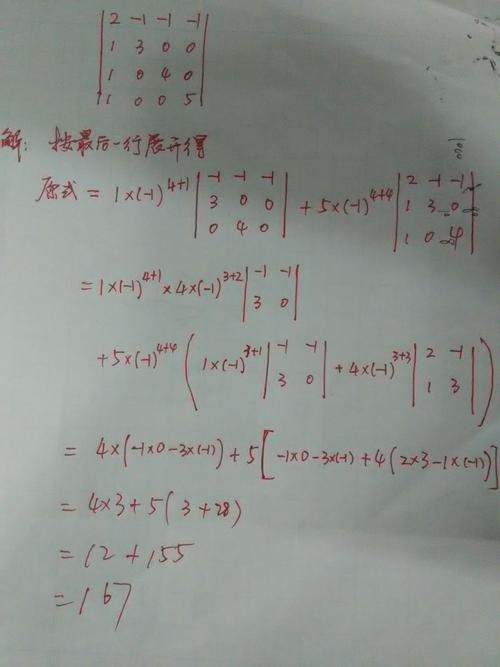 | 2 -1 -1 -1 |
| 1 3 0 0 |
| 1 0 4 0 |
| 1 0 0 5 |
解: 按最后一行展开得
原式 = 1×(-1)^{4+1} | -1 -1 -1 ; 3 0 0 ; 0 4 0 | + 5×(-1)^{4+4} | 2 -1 -1 ; 1 3 0 ; 1 0 4 |
= 1×(-1)^{4+1} × 4×(-1)^{3+2} | -1 -1 ; 3 0 |
+5×(-1)^{4+4} ( 1×(-1)^{3+1} | -1 -1 ; 3 0 | + 4×(-1)^{3+3} | 2 -1 ; 1 3 | )
= 4×(-1×0-3×(-1)) + 5[-1×0-3×(-1)+4(2×3-1×(-1))]
= 4×3+5(3+28)
= 12+155
= 167